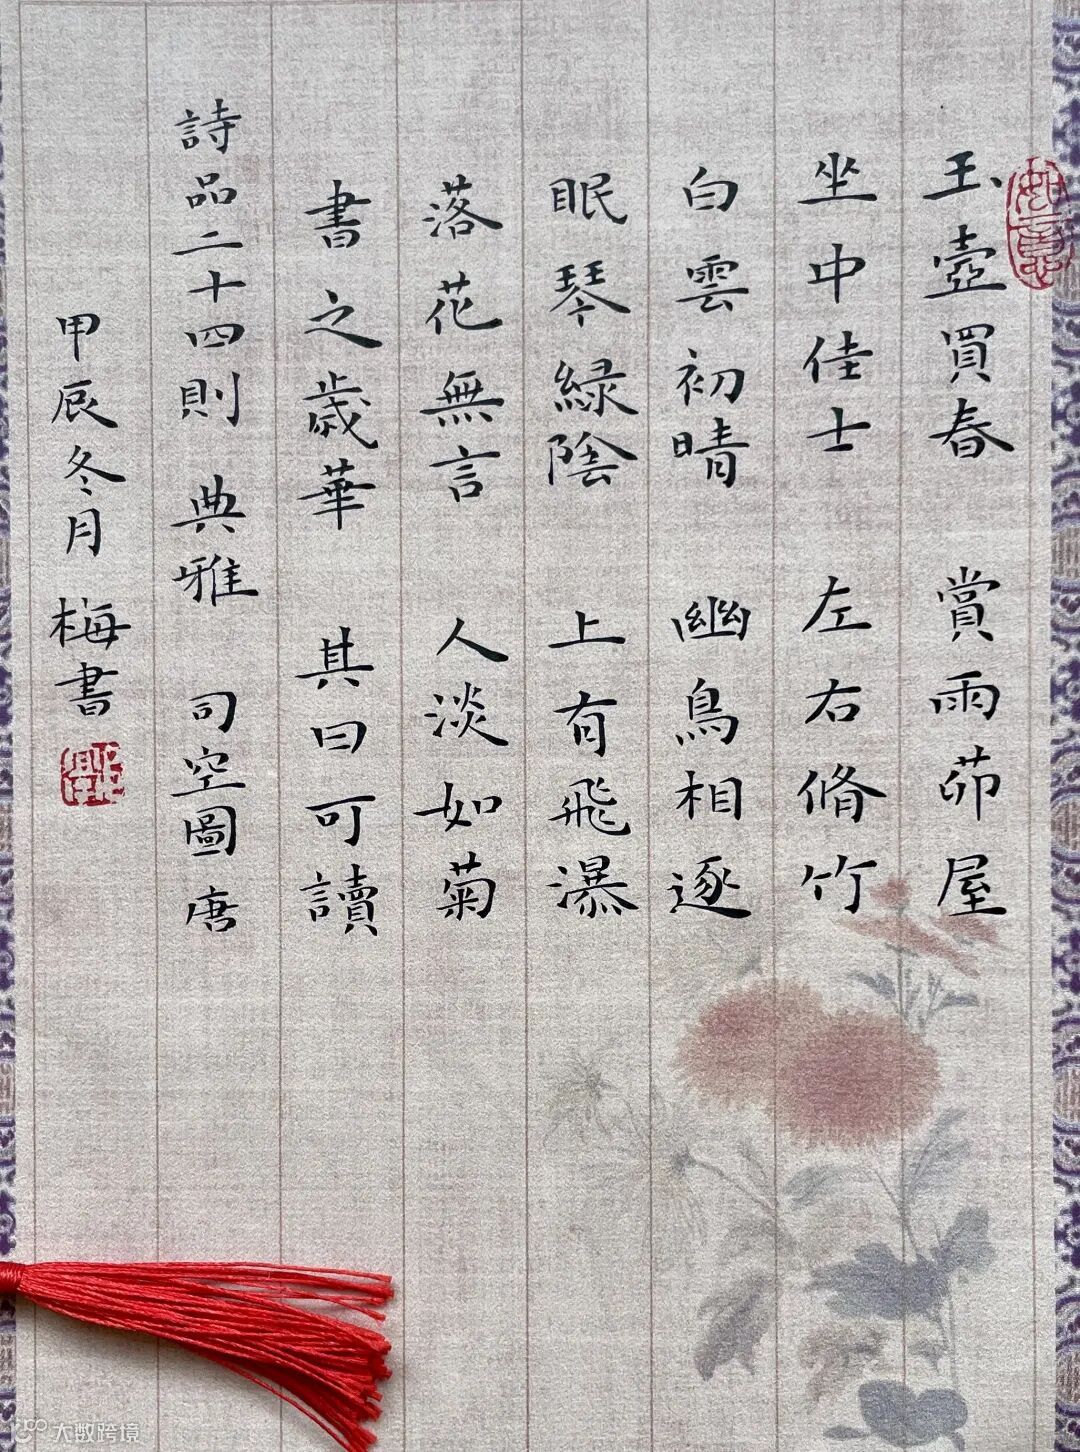 玉壺買春 賞雨茆屋
坐中佳士 左右脩竹
白雲初晴 幽鳥相逐
眠琴綠陰 上有飛瀑
落花無言 人淡如菊
書之歲華 其曰可讀
詩品二十四則 典雅 司空圖 唐
甲辰冬月 梅書
如意
大數跨境